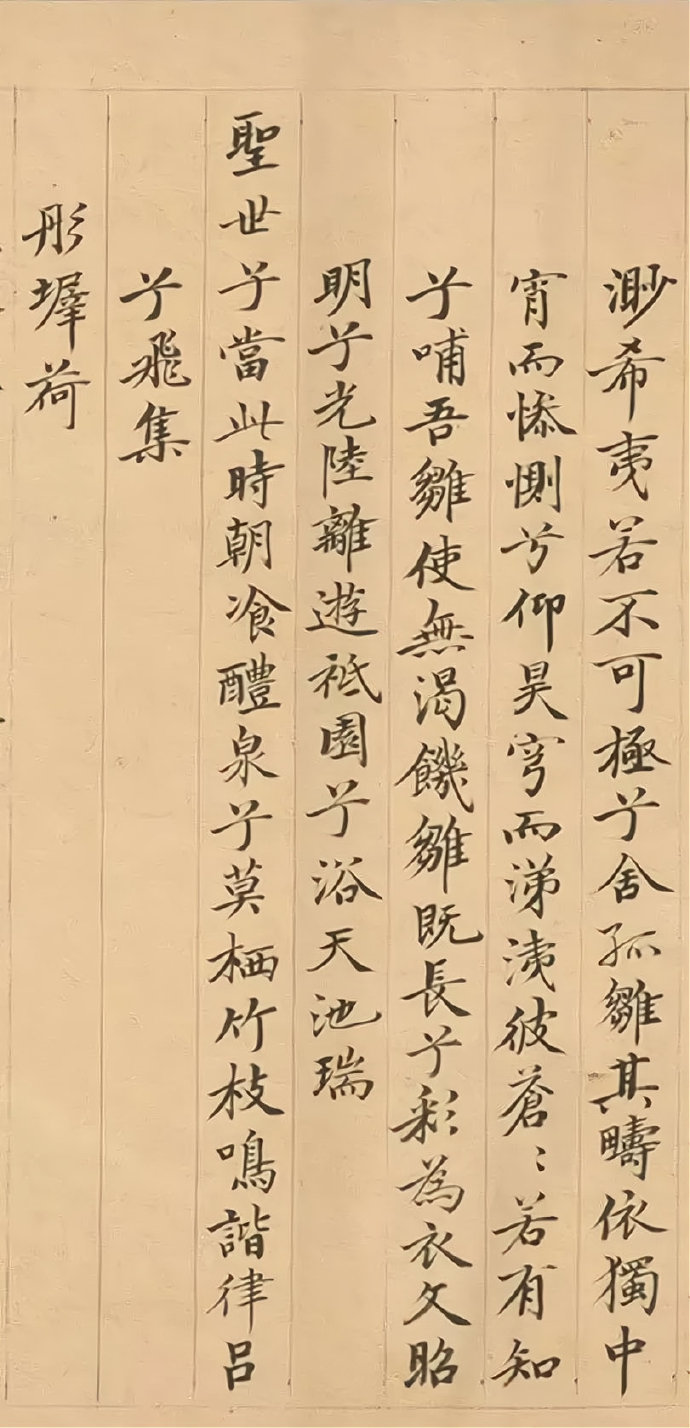 渺希夷若不可極兮舍孤雛其疇依獨中
宵而慘惻兮仰昊穹而涕洟彼蒼〻若有知
兮哺吾雛使無渴饑雛既長兮彩為衣文昭
明兮光陸離遊祗園兮浴天池瑞
聖世兮當此時朝飡醴泉兮莫栖竹枝鳴諧律呂
兮飛集
彤墀荷